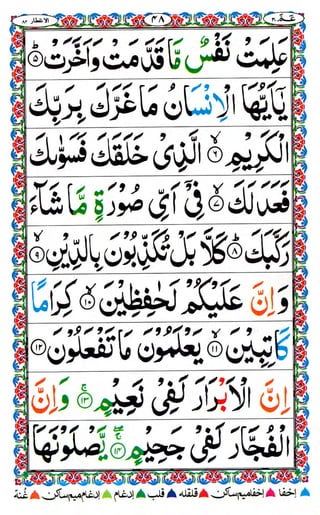 عمّ ٣٠ ٤٨ الانفطار ٨٢
عَلِمَتْ نَفْسٌ مَّا قَدَّمَتْ وَاَخَّرَتْ ۝٥
يٰۤاَيُّهَا الْاِنْسَانُ مَا غَرَّكَ بِرَبِّكَ
الْكَرِيْمِ ۝٦ الَّذِيْ خَلَقَكَ فَسَوّٰىكَ
فَعَدَلَكَ ۝٧ فِيْۤ اَيِّ صُوْرَةٍ مَّا شَآءَ
رَكَّبَكَ ۝٨ كَلَّا بَلْ تُكَذِّبُوْنَ بِالدِّيْنِ ۝٩
وَاِنَّ عَلَيْكُمْ لَحٰفِظِيْنَ ۝١٠ كِرَامًا
كَاتِبِيْنَ ۝١١ يَعْلَمُوْنَ مَا تَفْعَلُوْنَ ۝١٢
اِنَّ الْاَبْرَارَ لَفِيْ نَعِيْمٍ ۝١٣ وَاِنَّ
الْفُجَّارَ لَفِيْ جَحِيْمٍ ۝١٤ يَّصْلَوْنَهَا
اخفا اخفامیم ساکن قلقله قلب ادغام ادغام میم ساکن غنه